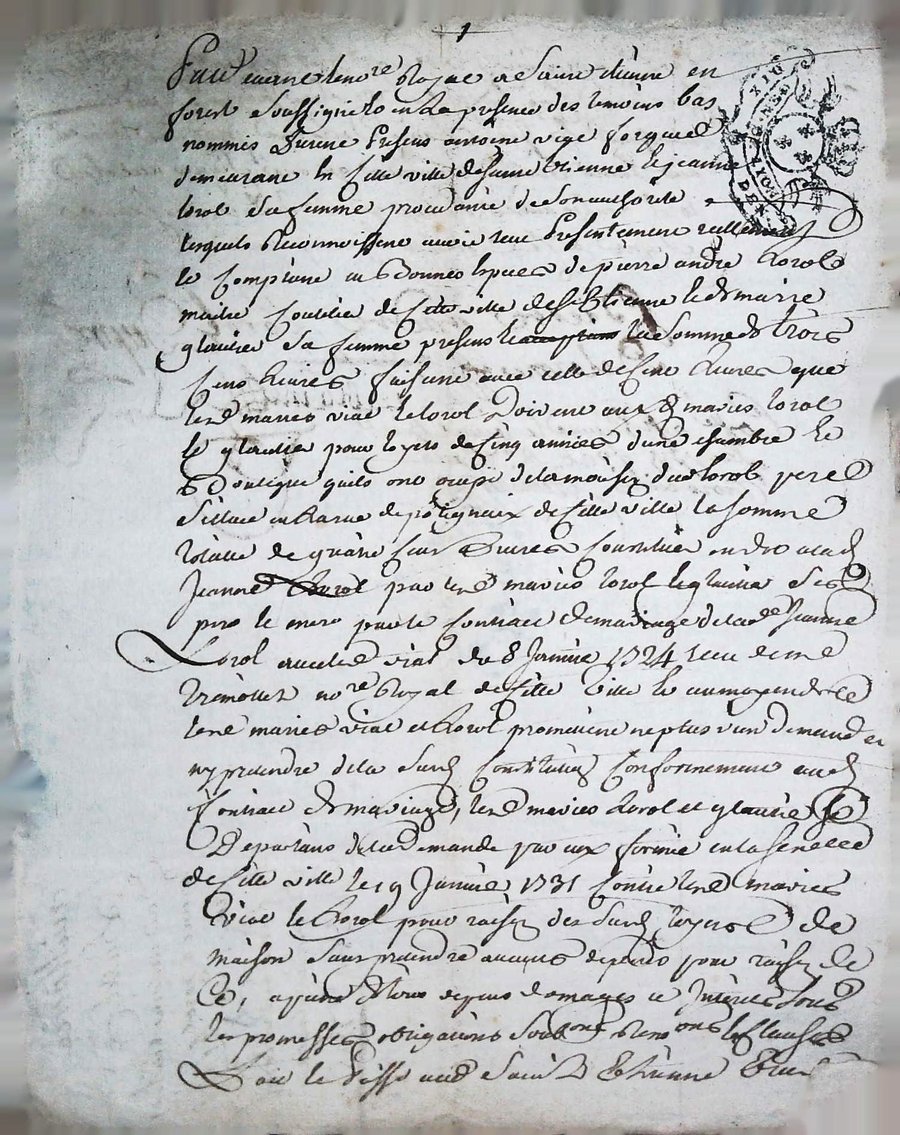 1
Pardevant le no.re Royal a Saint Etienne en
forest Soussigné et en La presence des temoins bas
nommés furent presens antoine vial forgeur
demeurant en cette ville de Saint Etienne et jeanne
lorol Sa femme procedante de Son authorité
lesquels Reconnoissent avoir receu presentement reellement
et Comptant de pierre andré Lorol
maitre de cette ville de St Etienne et de marie
glautier Sa femme presens et la Somme de trois
Cens Livres faisant avec celle de Cent Livres que
les d maries vial et lorol Doivent aux d maries lorol
et glautier pour loyers de Cinq années d'une chambre et
Boutique quils ont ocupé de la maison dud lorol pere
Sittuée en La rue de polignaix de cette ville la Somme
totalle de quatre Cens Livres Constituée en dot a lad
Jeanne Lorol par les d maries lorol et glautier Ses
pere et mere par le Contract de mariage de lad Jeanne
Lorol avec led vial du 8 Janvier 1724 receu de me
no.re Royal de cette ville et au moyen de ce
les d maries vial et Lorol promettent ne plus rien demander
ny pretendre de la Susd Constitution Conformement aud
Contract de mariage, les d maries Lorol et glautier Se
Departans de la demande par eux formée en la Senechee
de Cette ville le 19 Janvier 1731 Contre les d maries
vial et Lorol pour raison des Susd loyers de
maison Sans pretendre aucuns depens pour raison de
Ce, a peine de tous depens domages et Interets Sous
les promesses obligations Soub.ons Renon.ons et Clauses
Fait et Passé aud Saint Etienne